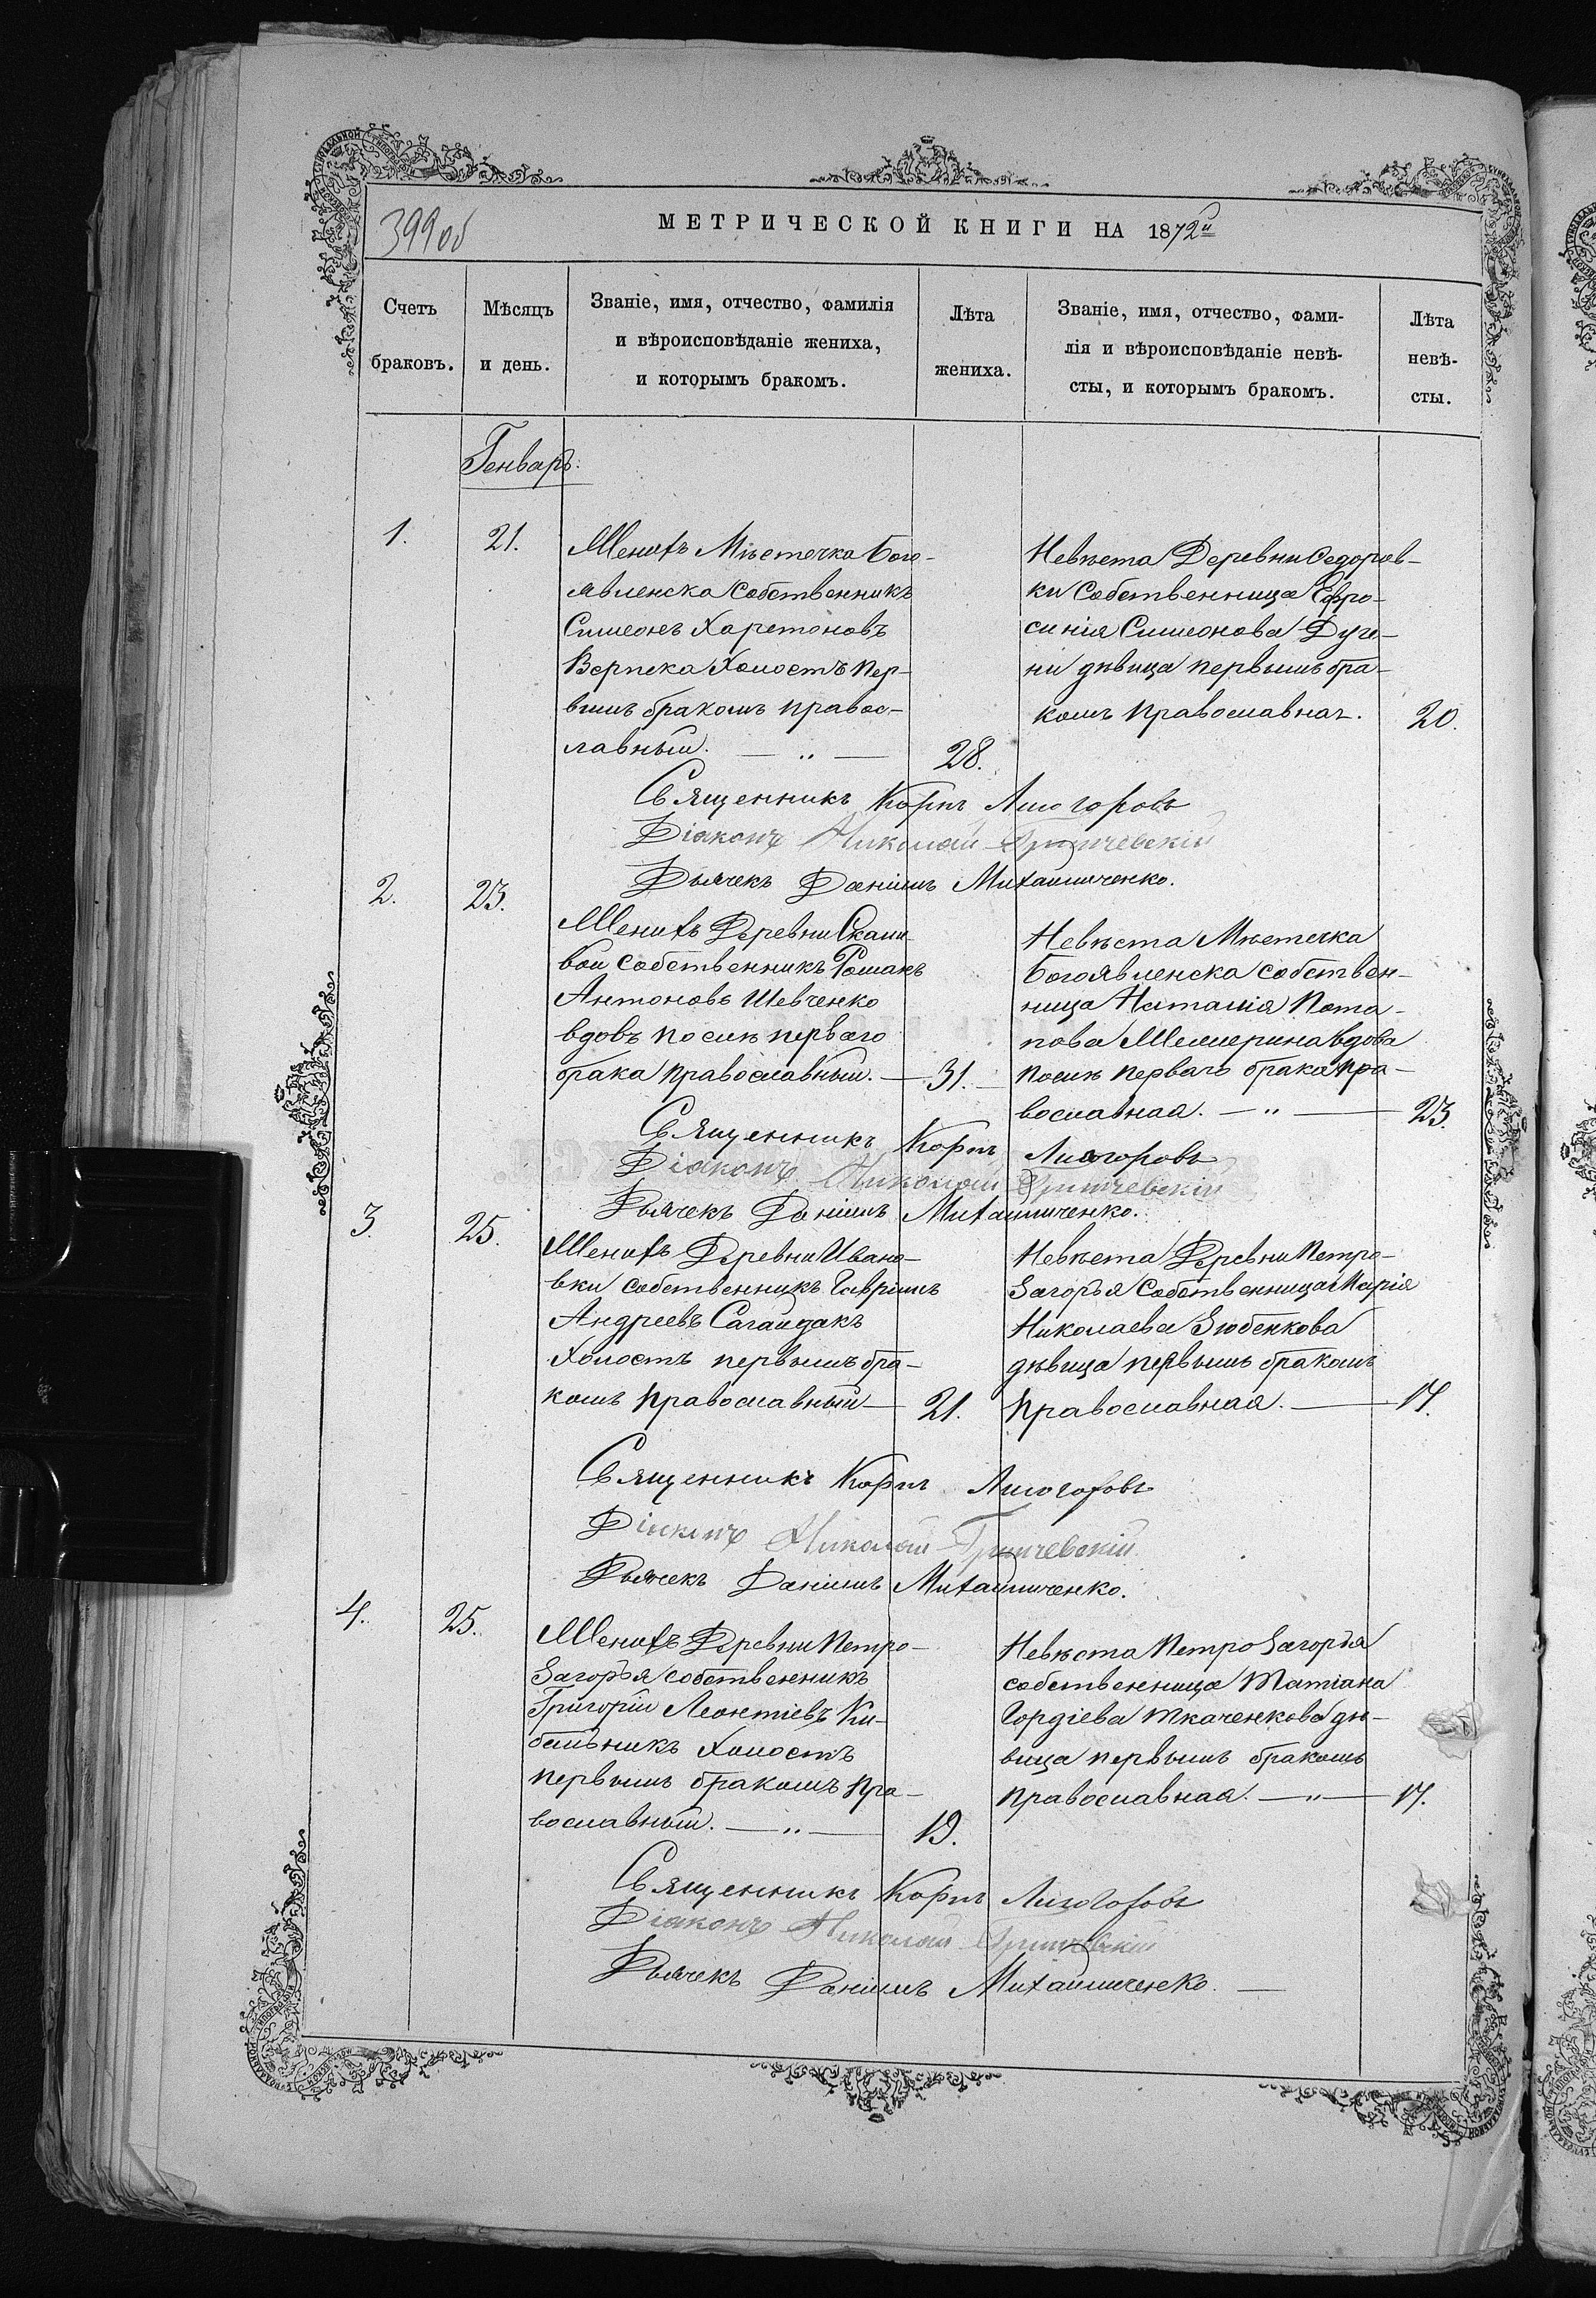 399об
МЕТРИЧЕСКОЙ КНИГИ НА 1872й
Счетъ
браковъ.
Мѣсяцъ
и день.
Званіе, имя, отчество, фамилія
и вѣроисповѣданіе жениха,
и которымъ бракомъ.
Лѣта
жениха.
Званіе, имя, отчество, фами-
лія и вѣроисповѣданіе невѣ-
сты, и которымъ бракомъ.
Лѣта
невѣ-
сты.
Генварь.
1.
21.
Женихъ Мѣстечка Бого-
явленска собственникъ
Симеонъ Харетоновъ
Верпека Холостъ пер-
вымъ бракомъ правос-
лавный. — „ —
28.
Невѣста Деревни Федоров-
ки Собственница Евфро-
синія Симеонова
ни дѣвица первымъ бра-
комъ православная.
20.
Священникъ Корпъ
Діаконъ Николай
Дьячекъ Даніилъ Михайличенко.
2.
23.
Женихъ Деревни
вой собственникъ Романъ
Антоновъ Шевченко
вдовъ послѣ перваго
брака православный. —
31. —
Невѣста Мѣстечка
Богоявленска собствен-
ница Наталія Пота-
пова вдова
послѣ перваго брака пра-
вославная. — „ —
23.
Священникъ Корпъ
Діаконъ Николай
Дьячекъ Даніилъ Михайличенко.
3.
25.
Женихъ Деревни Ивано-
вки собственникъ Гавріилъ
Андреевъ Сагайдакъ
Холостъ первымъ бра-
комъ православный —
21.
Невѣста Деревни Петро-
Загорья Собственница Марія
Николаева Зюбенкова
дѣвица первымъ бракомъ
православная. —
17.
Священникъ Корпъ
Діаконъ Николай
Дьячекъ Даніилъ Михайличенко.
4.
25.
Женихъ Деревни Петро-
Загорья собственникъ
Григорій Леонтіевъ Ки-
бальникъ Холостъ
первымъ бракомъ пра-
вославный. — „ —
19.
Невѣста Петро Загорья
собственница Татіана
Гордіева Ткаченкова дѣ-
вица первымъ бракомъ
православная. — „ —
17.
Священникъ Корпъ
Діаконъ Николай
Дьячекъ Даніилъ Михайличенко. —